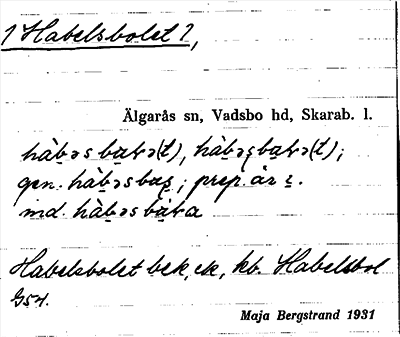 1 Habelsbolet 1,
Älgarås sn, Vadsbo hd, Skarab. l.
hàb̠əs ba̠rə(t), hàb̠əs̠ba̠rə(t);
gen. hàb̠əs bas̠; prep. är i̠.
ind. hàb̠əs bàra
Habelsbolet bek, ek, kb. Habelsbol
G54.
Maja Bergstrand 1931